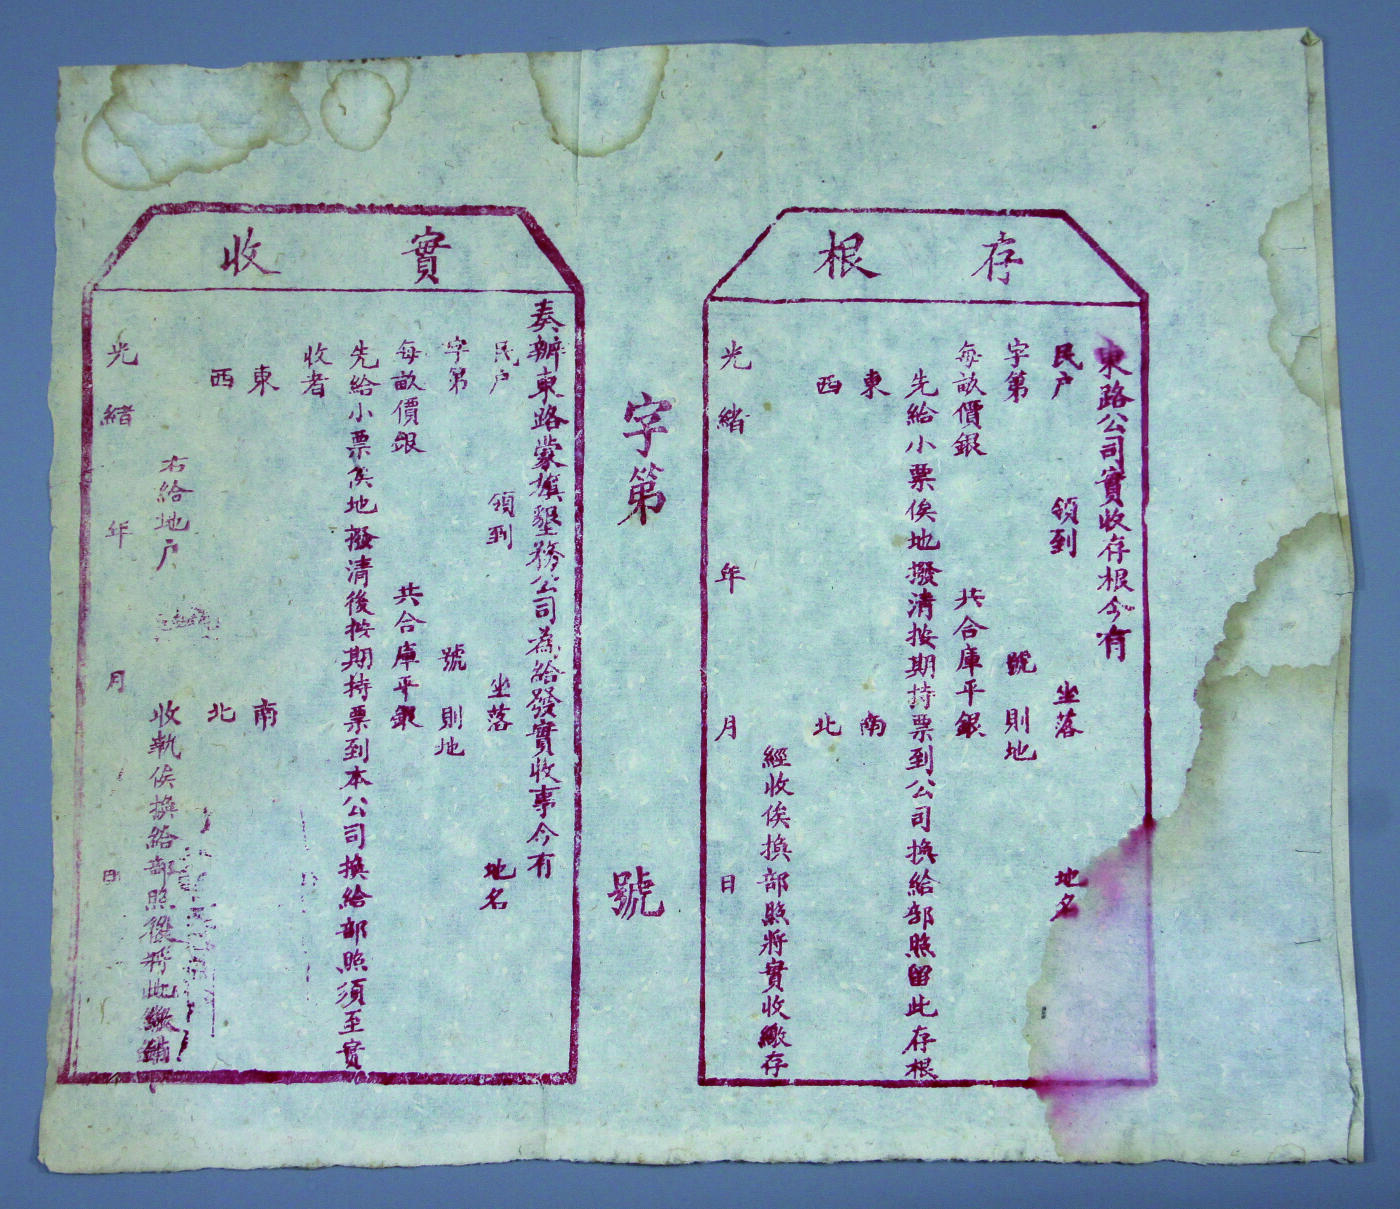 存根
東路公司實收存根今有
民户 領到 坐落 地名
字第 號 則地
每畝價銀 共合庫平銀
先給小票俟地撥清按期持票到公司換給部照留此存根
東 南
西 北
經收俟換部照將實收繳存
光緒 年 月 日
字第 號
實收
奏辦東路蒙旗墾務公司為給發實收事今有
民户 領到 坐落 地名
字第 號 則地
每畝價銀 共合庫平銀
先給小票俟地撥清後按期持票到本公司換給部照須至實
收者
東 南
西 北
右給地户 收執俟換給部照後將此繳銷
光緒 年 月 日